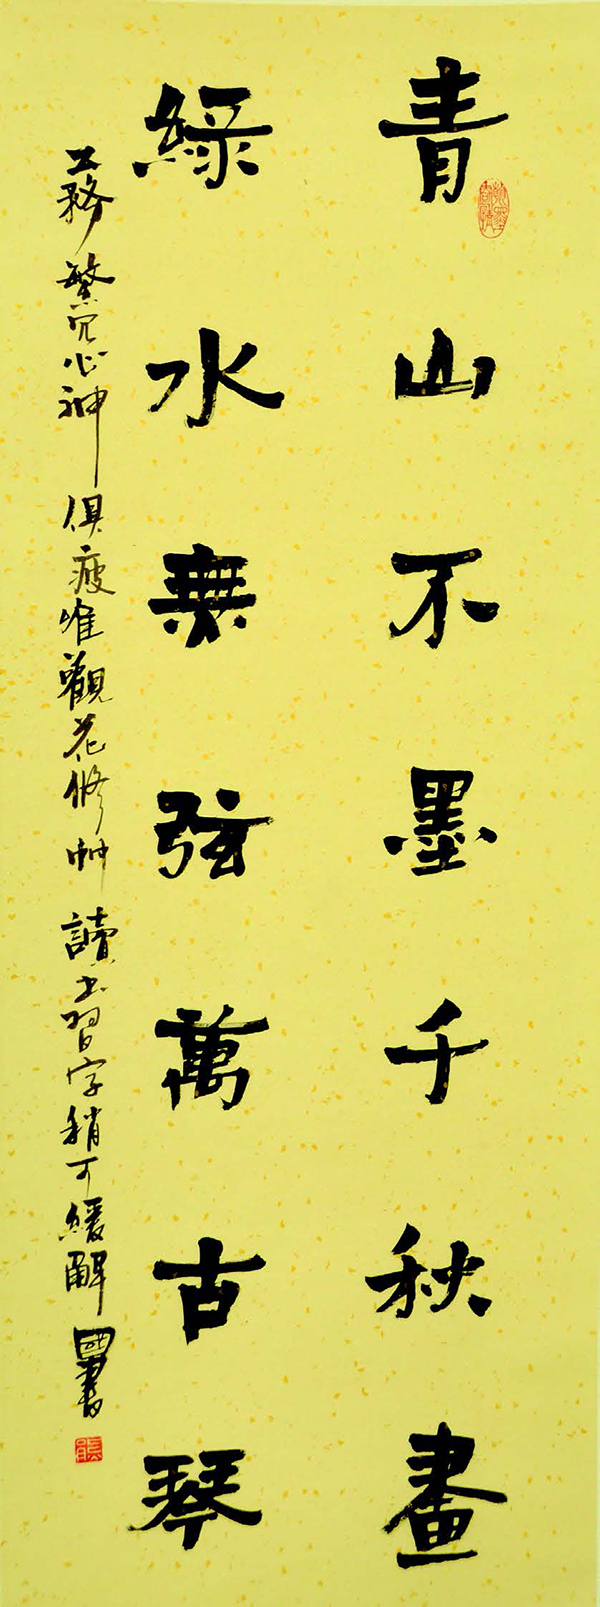 青山不墨千秋畫
綠水無弦萬古琴
工務繁冗心神俱疲惟觀花修艸讀書習字稍可緩解國書